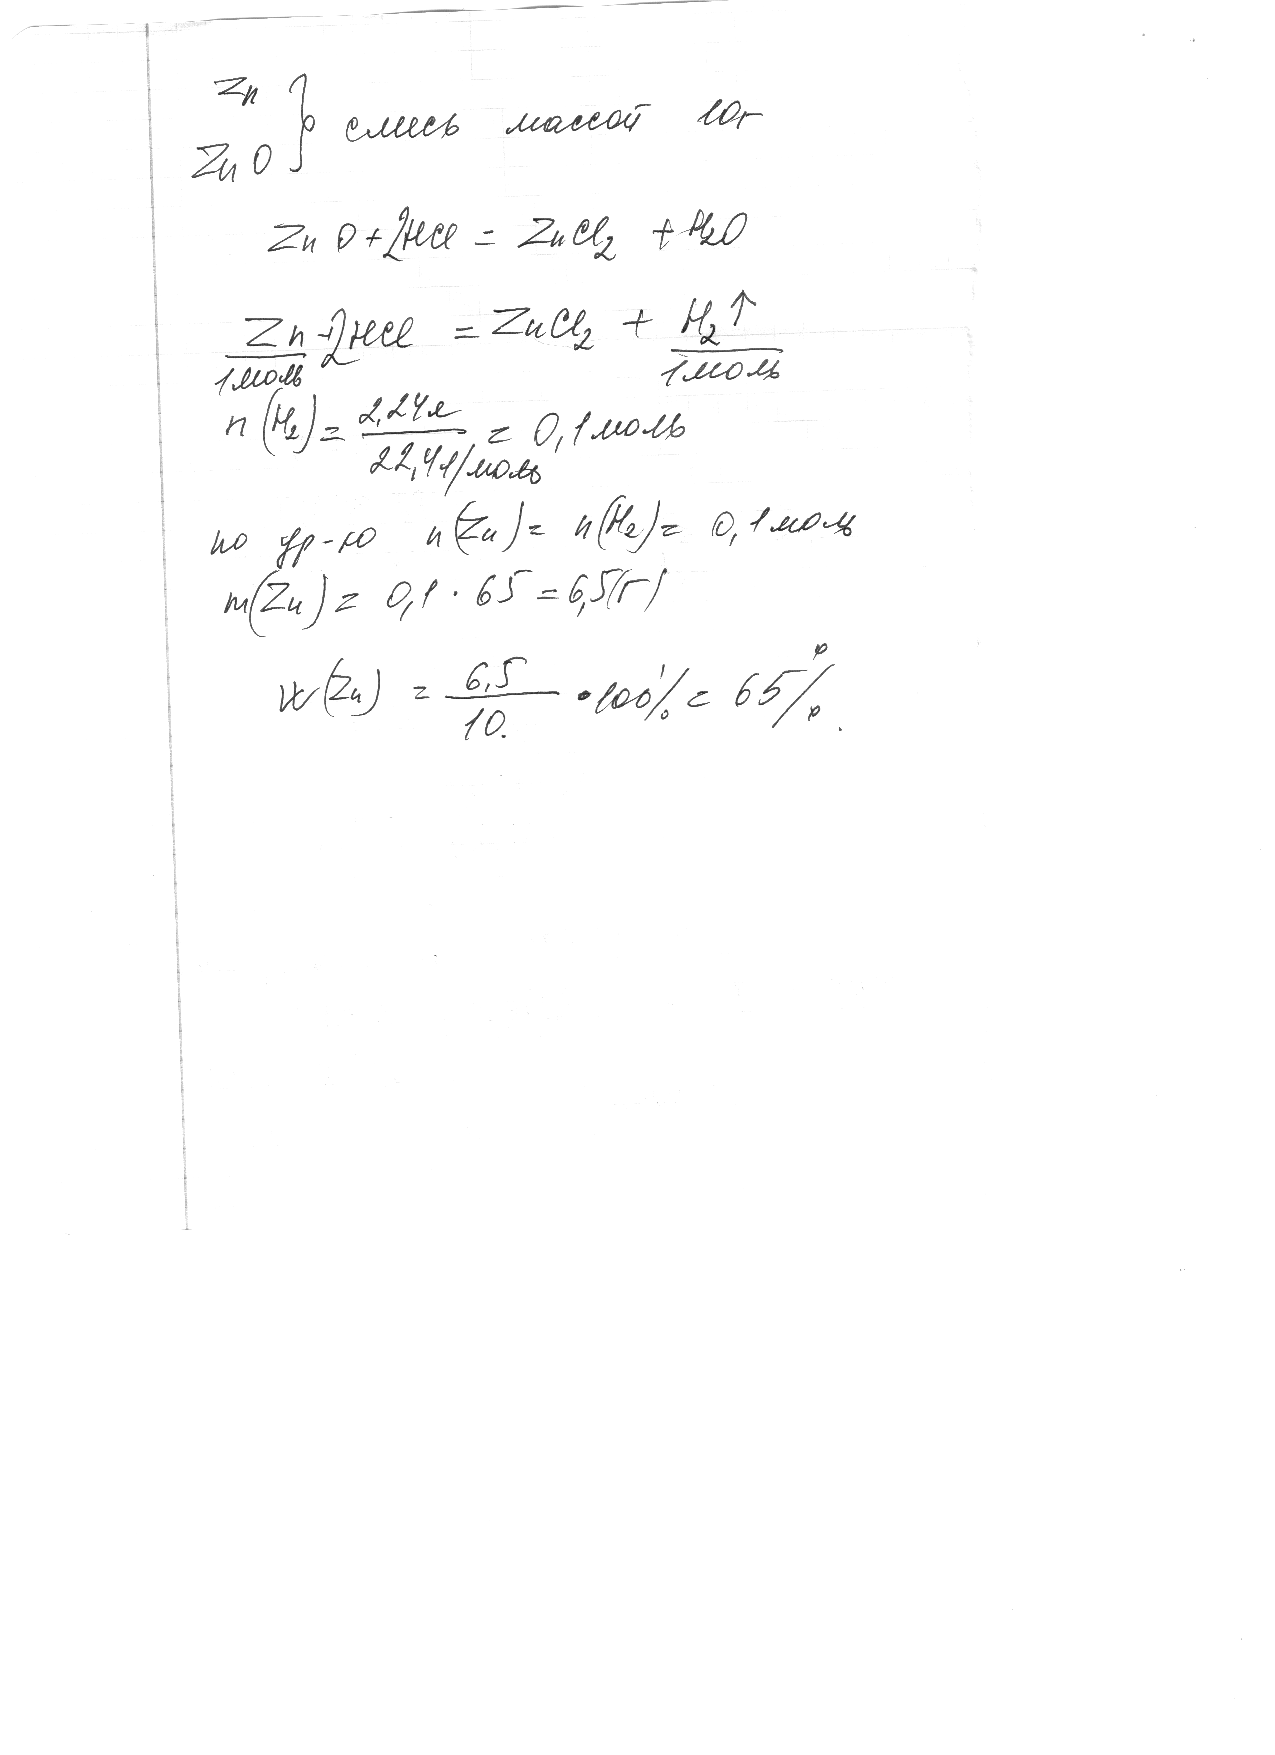 Zn
ZnO } смесь массой 10г
ZnO + 2HCl = ZnCl2 + H2O
Zn + 2HCl = ZnCl2 + H2↑
1моль 1моль
n(H2) = 2,24л / 22,4л/моль = 0,1моль
по ур-ю n(Zn) = n(H2) = 0,1моль
m(Zn) = 0,1 · 65 = 6,5(г)
w(Zn) = 6,5 / 10 · 100% = 65%.